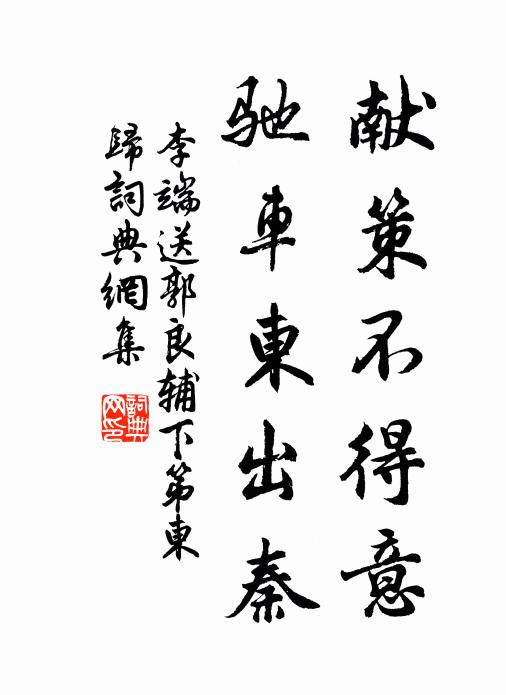 献策不得意
驰車東出秦
李端送郭良辅下第東
歸詞典網集
詞典网印